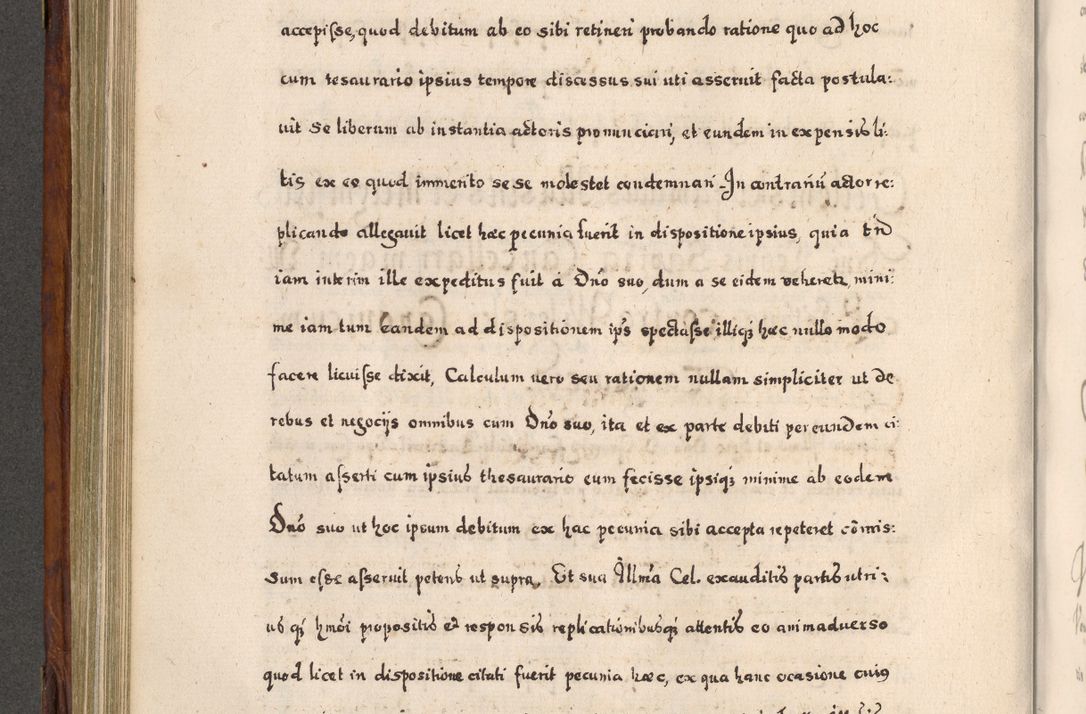 accepisse, quod debitum ab eo sibi retineri probando ratione quo ad hoc
cum tesaurario ipsius tempore discessus sui uti asseruit facta postula:
uit se liberum ab instantia actoris pronunciari, et eundem in expensis li:
tis ex eo quod immerito sese molestet condemnari. In contrariũ actor re:
plicando allegauit licet hæc pecunia fuerit in dispositione ipsius, quia tñ
iam interim ille expeditus fuit á Dnõ suo, dum a se eidem veheretr, mini:
me iam tum eandem ad dispositionem ips spectasse illiqꝫ hæc nullo modo
facere licuisse dixit, Calculum uero seu rationem nullam simpliciter ut de
rebus et negocijs omnibus cum Dnõ suo, ita et ex parte debiti per eundem ci:
tatum asserti cum ipsius thesaurario eum fecisse ipsiqꝫ minime ab eodem
Dnõ suo ut hoc ipsum debitum ex hac pecunia sibi accepta repeteret cõmis:
sum esse asseruit petens ut supra. Et sua Illmã Cel. exauditis partis utri:
us qꝫ hmõi propositis et responsis replicationibusqꝫ attentis eo animaduerso
quod licet in dispositione citati fuerit pecunia hæc, ex qua hanc ocasione cuius